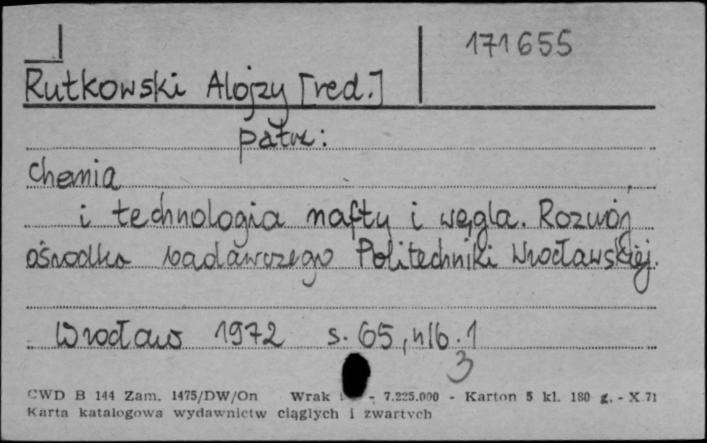 171655
Rutkowski Alojzy [red.]
patrz:
Chemia
i technologia nafty i węgla. Rozwój
ośrodka badawczego Politechniki Wrocławskiej.
Wrocław 1972 s. 65, nlb. 1
3
CWD B 144 Zam. 1475/DW/On Wrak - 7.225.000 - Karton 5 kl. 180 g. - X.71
Karta katalogowa wydawnictw ciągłych i zwartych